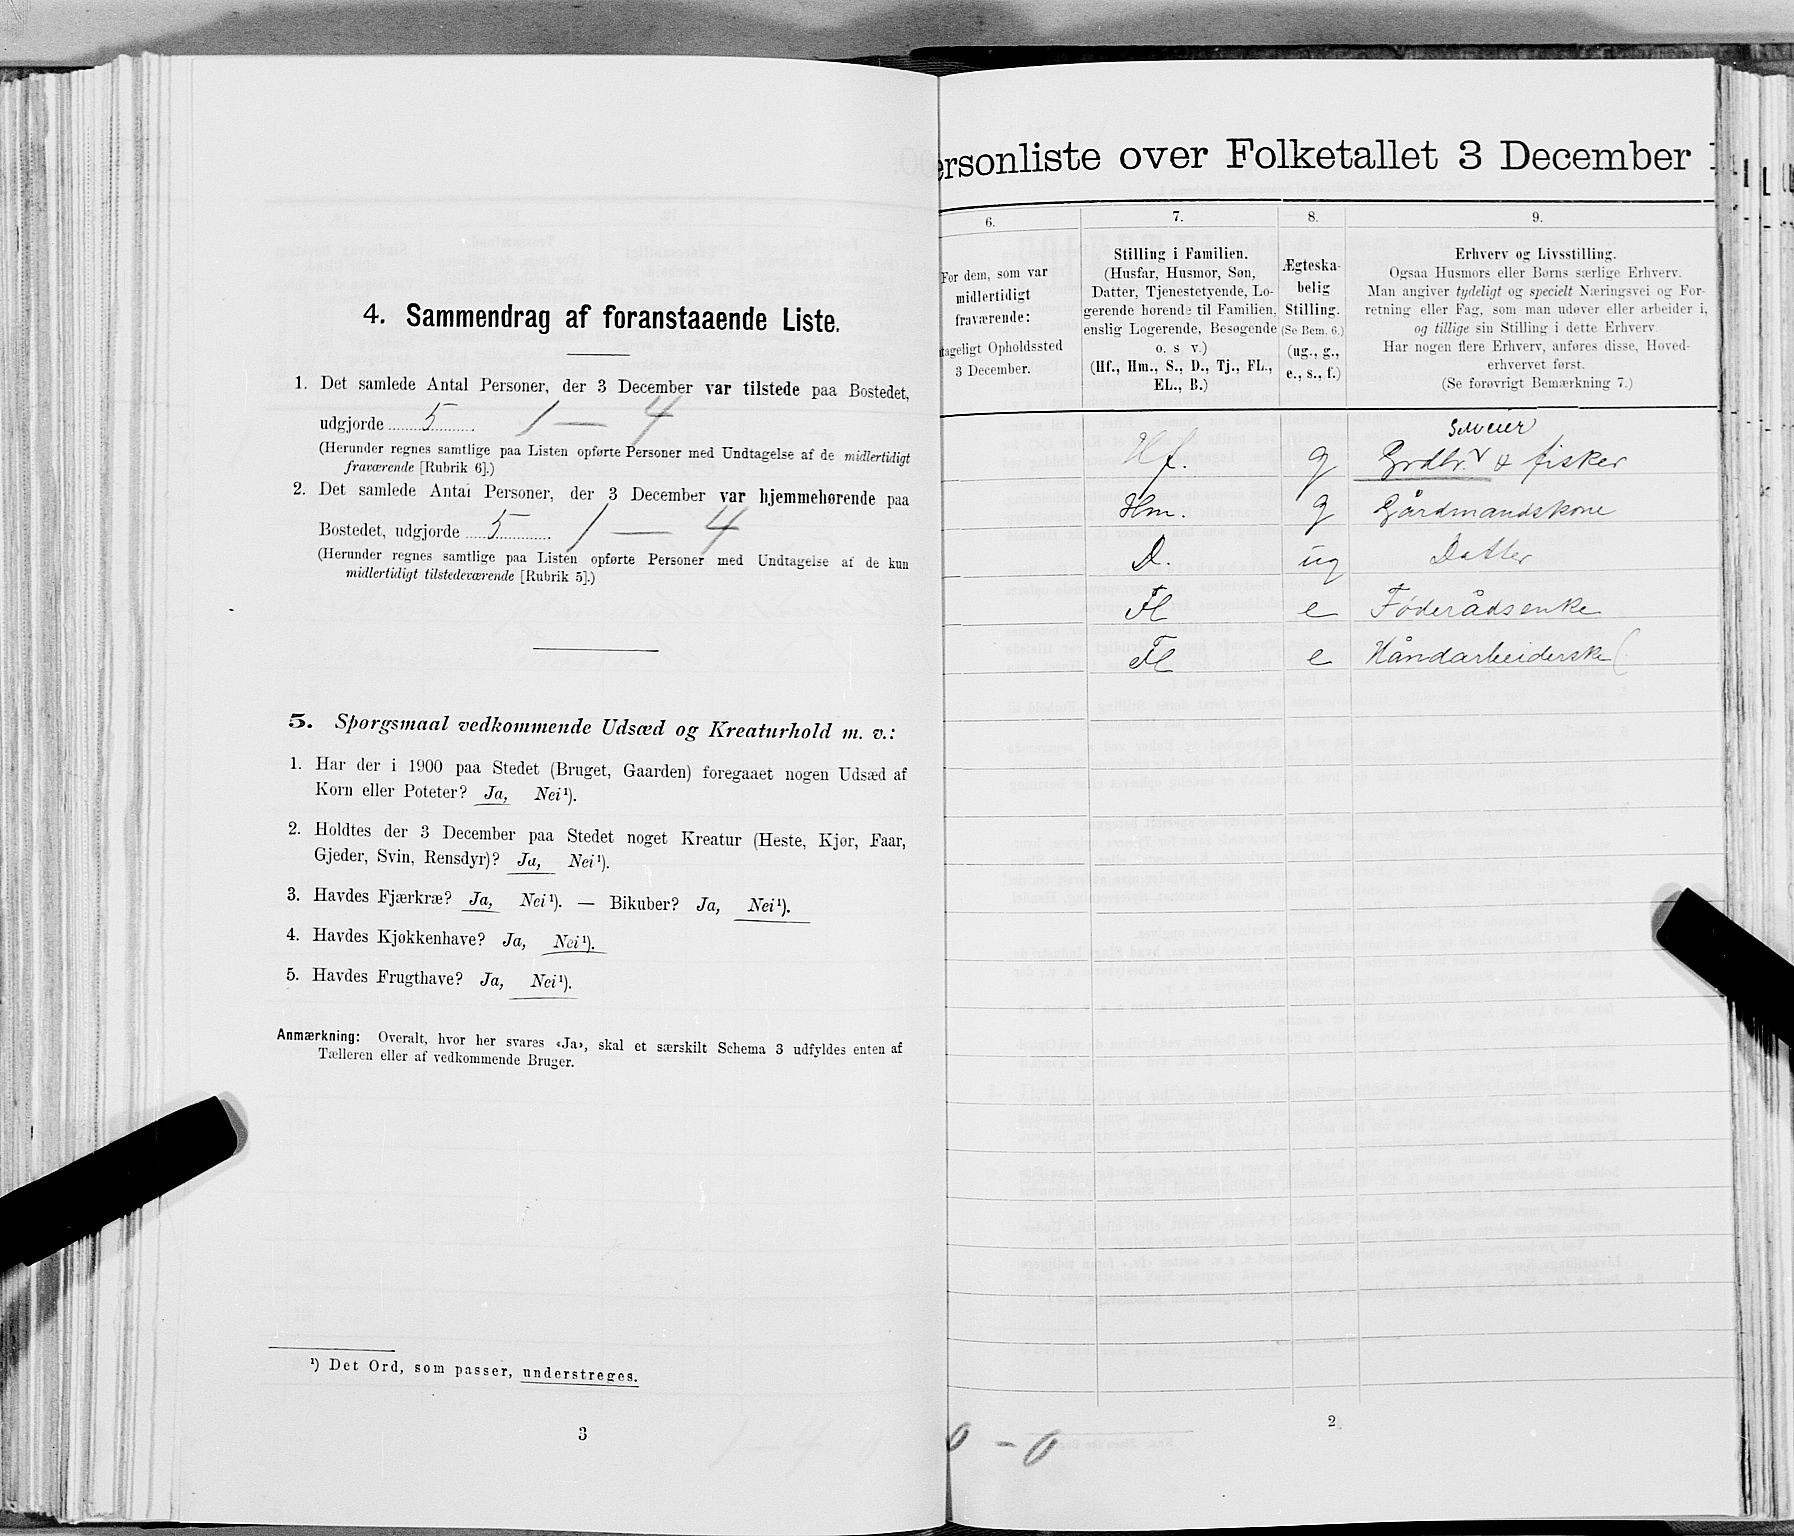 4. Sammendrag af foranstaaende Liste.
1. Det samlede Antal Personer, der 3 December var tilstede paa Bostedet,
udgjorde 5 1 — 4
(Herunder regnes samtlige paa Listen opførte Personer med Undtagelse af de midlertidigt
fraværende [Rubrik 6].)
2. Det samlede Antal Personer, der 3 December var hjemmehørende paa
Bostedet, udgjorde 5 1 — 4
(Herunder regnes samtlige paa Listen opførte Personer med Undtagelse af de kun
midlertidigt tilstedeværende [Rubrik 5].)
5. Sporgsmaal vedkommende Udsæd og Kreaturhold m. v.:
1. Har der i 1900 paa Stedet (Bruget, Gaarden) foregaaet nogen Udsæd af
Korn eller Poteter? Ja, Nei¹).
2. Holdtes der 3 December paa Stedet noget Kreatur (Heste, Kjør, Faar,
Gjeder, Svin, Rensdyr)? Ja, Nei¹).
3. Havdes Fjærkræ? Ja, Nei¹). — Bikuber? Ja, Nei¹).
4. Havdes Kjøkkenhave? Ja, Nei¹).
5. Havdes Frugthave? Ja, Nei¹).
Anmærkning: Overalt, hvor her svares «Ja», skal et særskilt Schema 3 udfyldes enten af
Tælleren eller af vedkommende Bruger.
¹) Det Ord, som passer, understreges.
3
ersonliste over Folketallet 3 December
6.
For dem, som var
midlertidigt
fraværende:
tageligt Opholdssted
3 December.
7.
Stilling i Familien.
(Husfar, Husmor, Søn,
Datter, Tjenestetyende, Lo-
gerende hørende til Familien,
enslig Logerende, Besøgende
o. s v.)
(Hf., Hm., S., D., Tj., FL.,
EL., B.)
8.
Ægteska-
belig
Stilling.
(Se Bem. 6.)
(ug., g.,
e., s., f.)
9.
Erhverv og Livsstilling.
Ogsaa Husmors eller Børns særlige Erhverv.
Man angiver tydeligt og specielt Næringsvei og For-
retning eller Fag, som man udøver eller arbeider i,
og tillige sin Stilling i dette Erhverv.
Har nogen flere Erhverv, anføres disse, Hoved-
erhvervet først.
(Se forøvrigt Bemærkning 7.)
Selveier
Hf. g Grdbr. & fisker
Hm. g Gårdmandskone
D. ug Datter
Fl e Føderådsenke
Fl e Håndarbeiderske
2
0 - 0